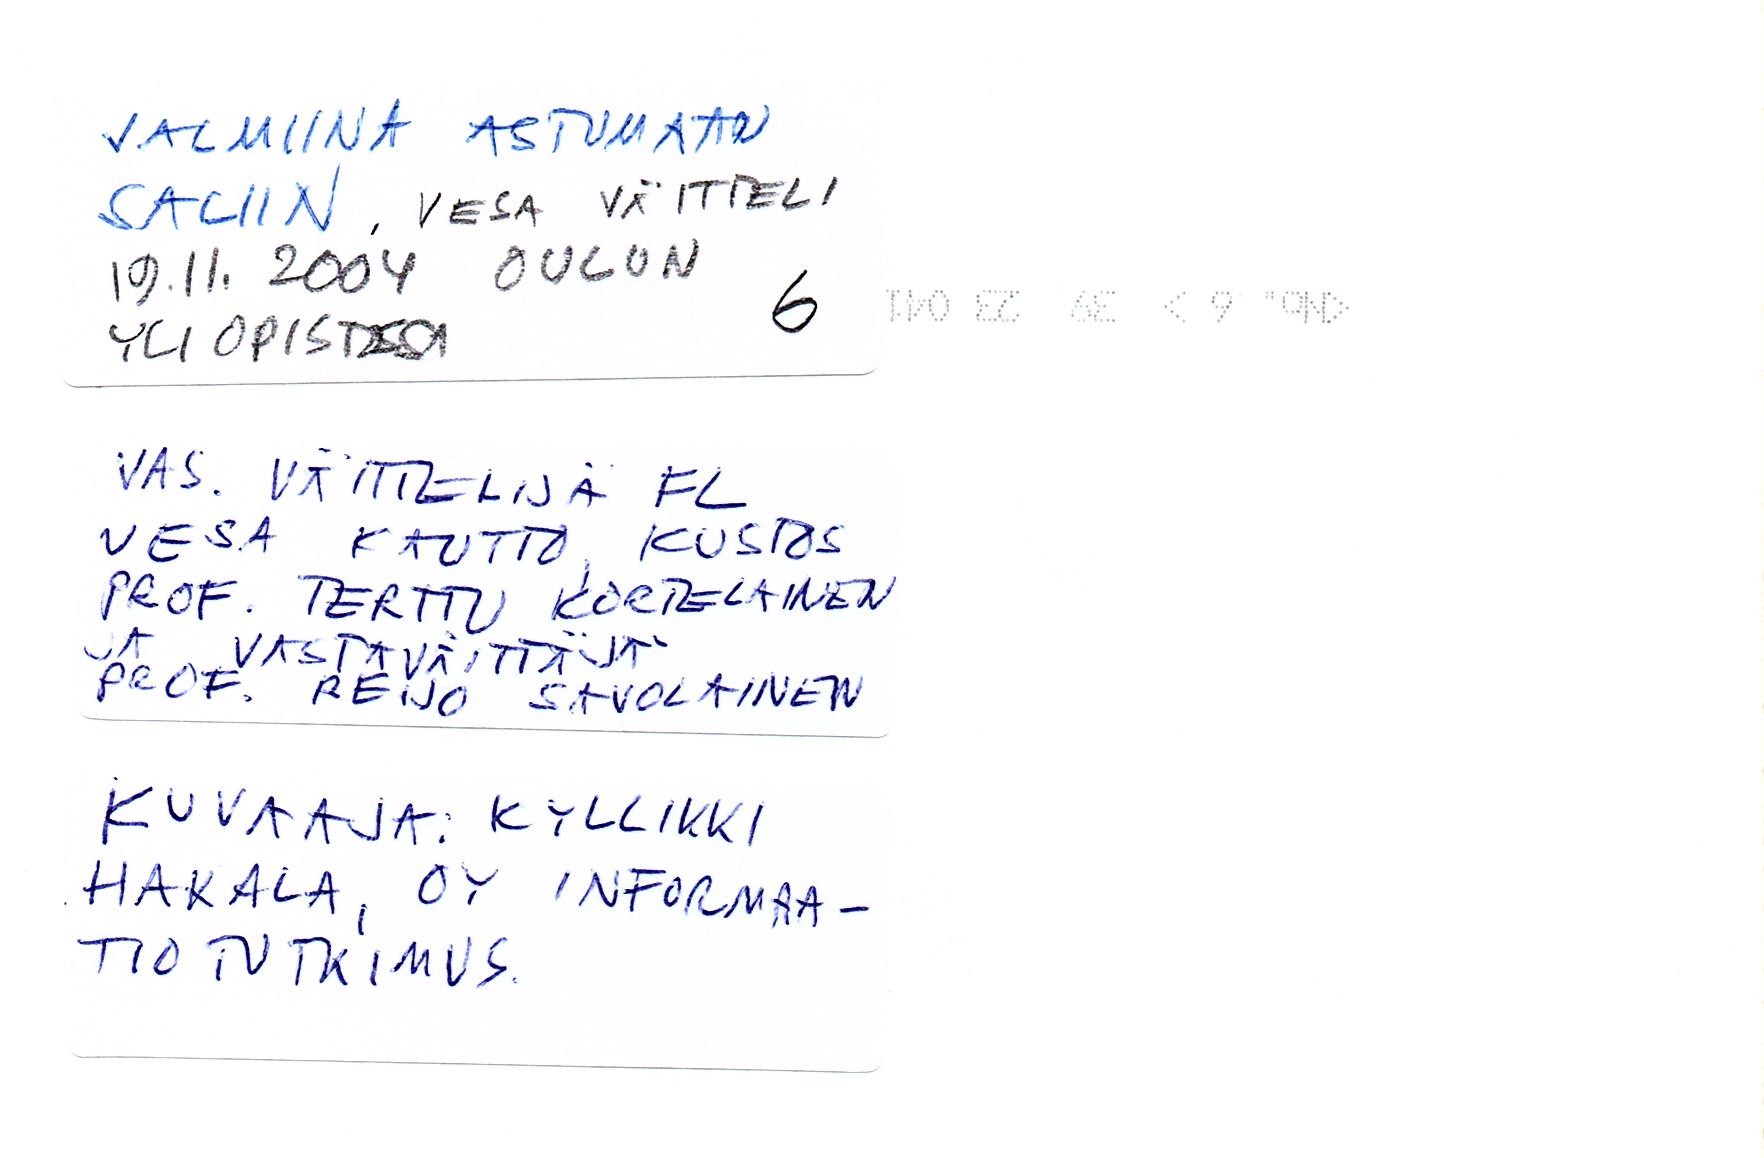 VALMIINA ASTUMAAN
SALIIN, VESA VÄITTELI
19.11.2004 OULUN
YLIOPISTOSSA
6
VAS. VÄITTELIJÄ FL
VESA KAUTTO, KUSTOS
PROF. TERTTU KORTELAINEN
JA VASTAVÄITTÄJÄ
PROF. REIJO SAVOLAINEN
KUVAAJA: KYLLIKKI
HAKALA, OY INFORMAA-
TIOTUTKIMUS.